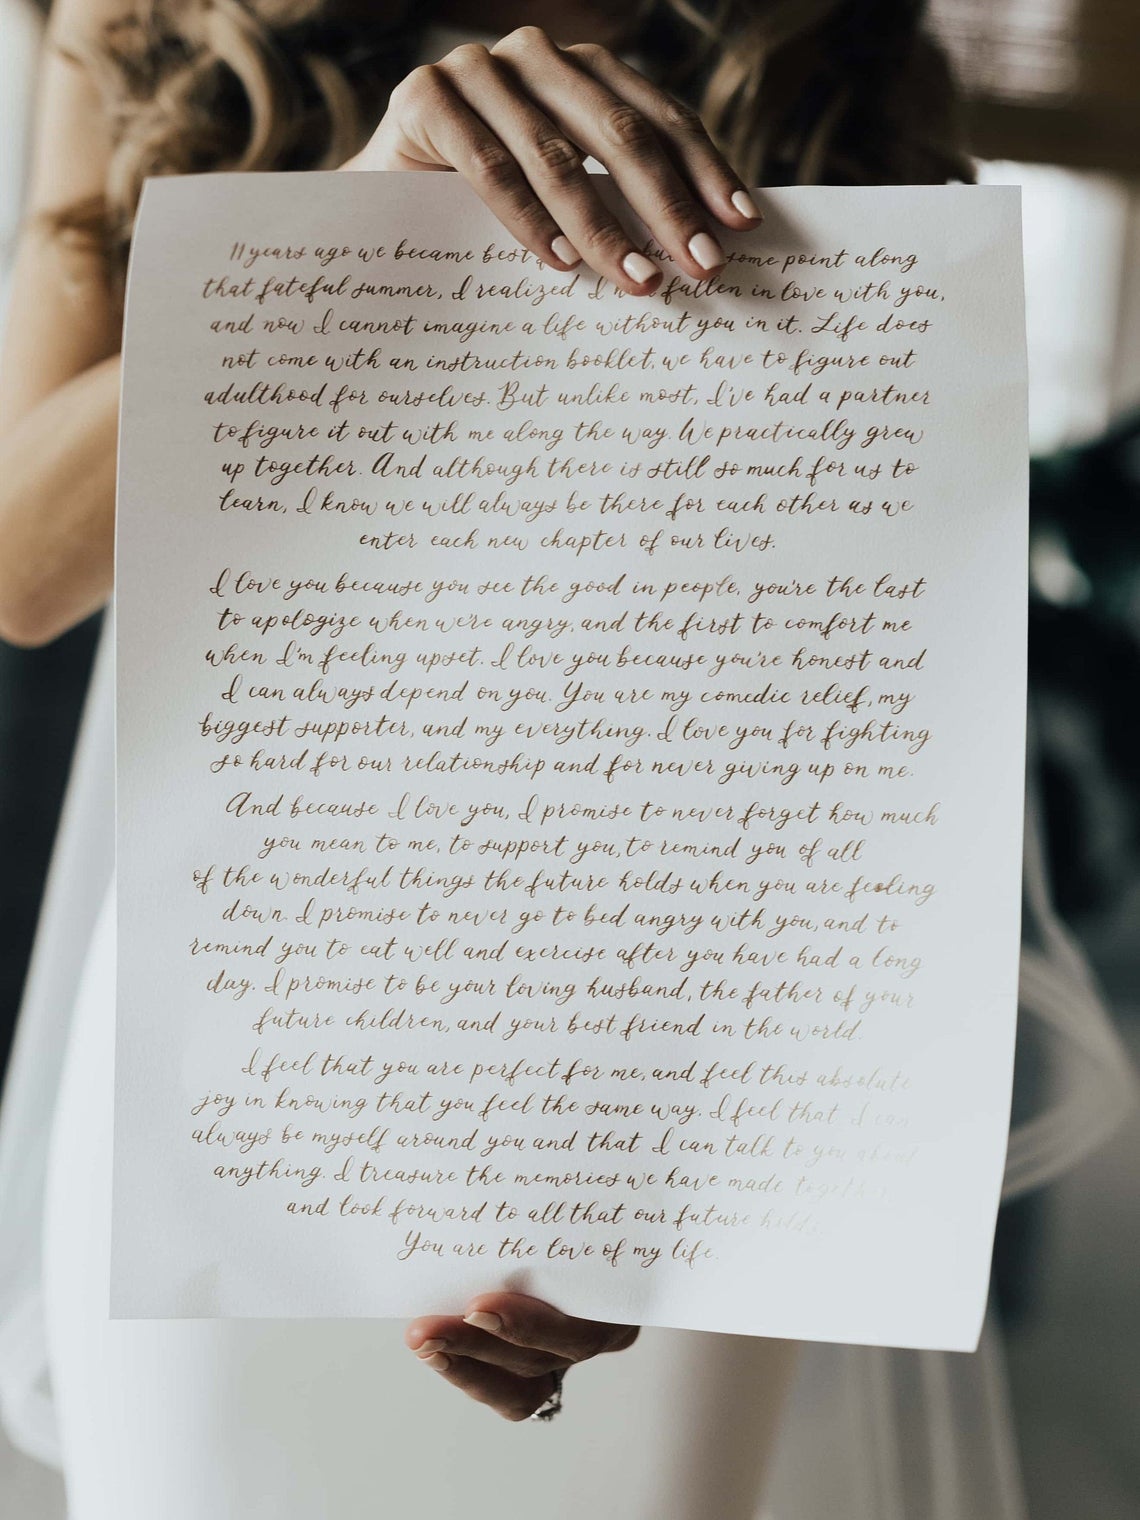 11 years ago we became best but some point along
that fateful summer, I realized I fallen in love with you,
and now I cannot imagine a life without you in it. Life does
not come with an instruction booklet, we have to figure out
adulthood for ourselves. But unlike most, I've had a partner
to figure it out with me along the way. We practically grew
up together. And although there is still so much for us to
learn, I know we will always be there for each other as we
enter each new chapter of our lives.
I love you because you see the good in people, you're the last
to apologize when we're angry, and the first to comfort me
when I'm feeling upset. I love you because you're honest and
I can always depend on you. You are my comedic relief, my
biggest supporter, and my everything. I love you for fighting
so hard for our relationship and for never giving up on me.
And because I love you, I promise to never forget how much
you mean to me, to support you, to remind you of all
of the wonderful things the future holds when you are feeling
down. I promise to never go to bed angry with you, and to
remind you to eat well and exercise after you have had a long
day. I promise to be your loving husband, the father of your
future children, and your best friend in the world.
I feel that you are perfect for me, and feel this absolute
joy in knowing that you feel the same way. I feel that I can
always be myself around you and that I can talk to you about
anything. I treasure the memories we have made together
and look forward to all that our future holds.
You are the love of my life.